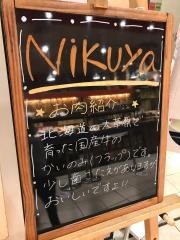 Nikuya
お肉紹介…
北海道の大草原で
育った国産牛の
かいのみ(フラップ)です。
少し歯ごたえがありますが
おいしいですよ!!